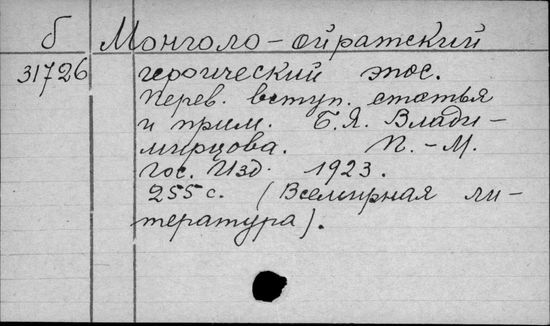 б Монголо-ойратский
31726 героический эпос.
Перев. вступ. статья
и прим. Б.Я. Влади-
мирцова. П.-М.
Гос. Изд. 1923.
255 с. (Всемирная ли-
тература).